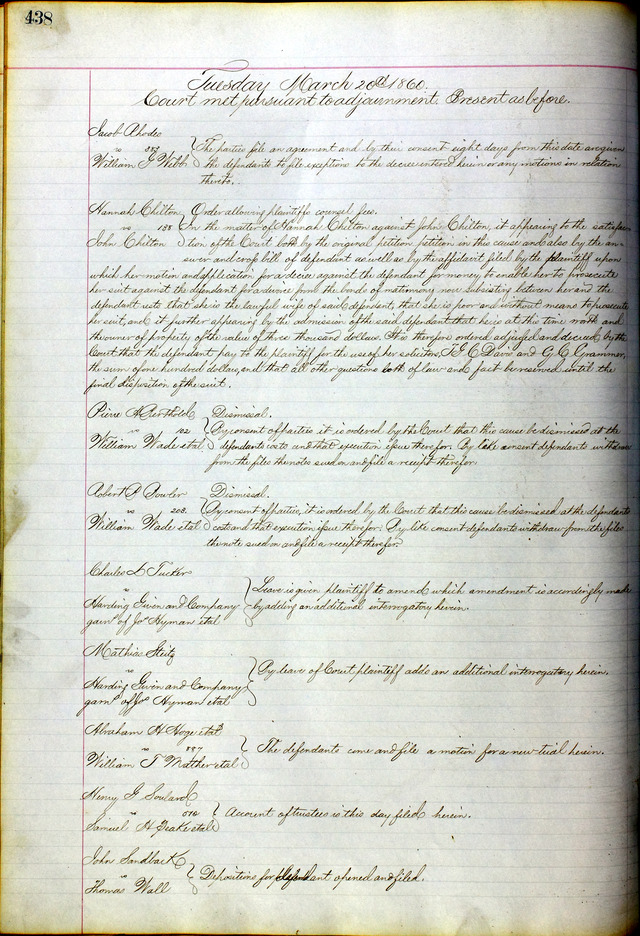 438
Tuesday March 20th 1860.
Court met pursuant to adjournment. Present as before.
Jacob Rhodes
vs
William J Webb
The parties file an agreement and by their consent eight days from this date are given
the defendants to file exceptions to the decree entered herein or any motions in relation
thereto.
Hannah Chilton Order allowing plaintiffs counsel fees.
vs 188 In the matter of Hannah Chilton against John Chilton, it appearing to the satisfac
John Chilton tion of the Court both by the original petition petition in this cause and also by the an
swer and crop bill of defendant as well as by the affidavit filed by the plaintiff upon
which her motion and application for a decree against the defendant for money to enable her to prosecute
her suit against the defendant for a divorce from the bonds of matrimony now subsisting between her and the
defendant rests that she is the lawful wife of said defendant, that she is poor and without means to prosecute
her suit, and it further appearing by the admission of the said defendant that he is at this time worth and
the owner of property of the value of three thousand dollars. It is therefore ordered adjudged and decreed by the
Court that the defendant pay to the plaintiff for the use of her solicitors, T. E. C. Davis and G. C. Grammer,
the sum of one hundred dollars, and that all other questions both of law and fact be reserved until the
final disposition of the suit.
Pierre A Berthold Dismissal.
vs 182
William Wade et al
By consent of parties it is ordered by the Court that this cause be dismissed at the
defendants costs and that execution issue therefor. By like consent defendants withdraw
from the files the note sued on and file a receipt therefor
Robert P Dismissal.
vs 208.
William Wade et al
By consent of parties, it is ordered by the Court that this cause be dismissed at the defendants
cost and that execution issue therefor. By like consent defendants withdraw from the files
the note sued on and file a receipt therefor.
Charles L Tucker
vs
Harding Given and Company
garn of Jos Hyman et al
Leave is given plaintiff to amend which amendment is accordingly made
by adding an additional interrogatory herein.
Mathias Steitz
vs
Harding Given and Company
garn of Jos Hyman et al
By leave of Court plaintiff adds an additional interrogatory herein.
Abraham H Hoge et al
vs
William T Mather et al
The defendants come and file a motion for a new trial herein.
Henry G Soulard
vs
Samuel H et al
Account of trustees is this day filed herein.
John Sandback
vs
Thomas Wall
Depositions for defendant opened and filed.